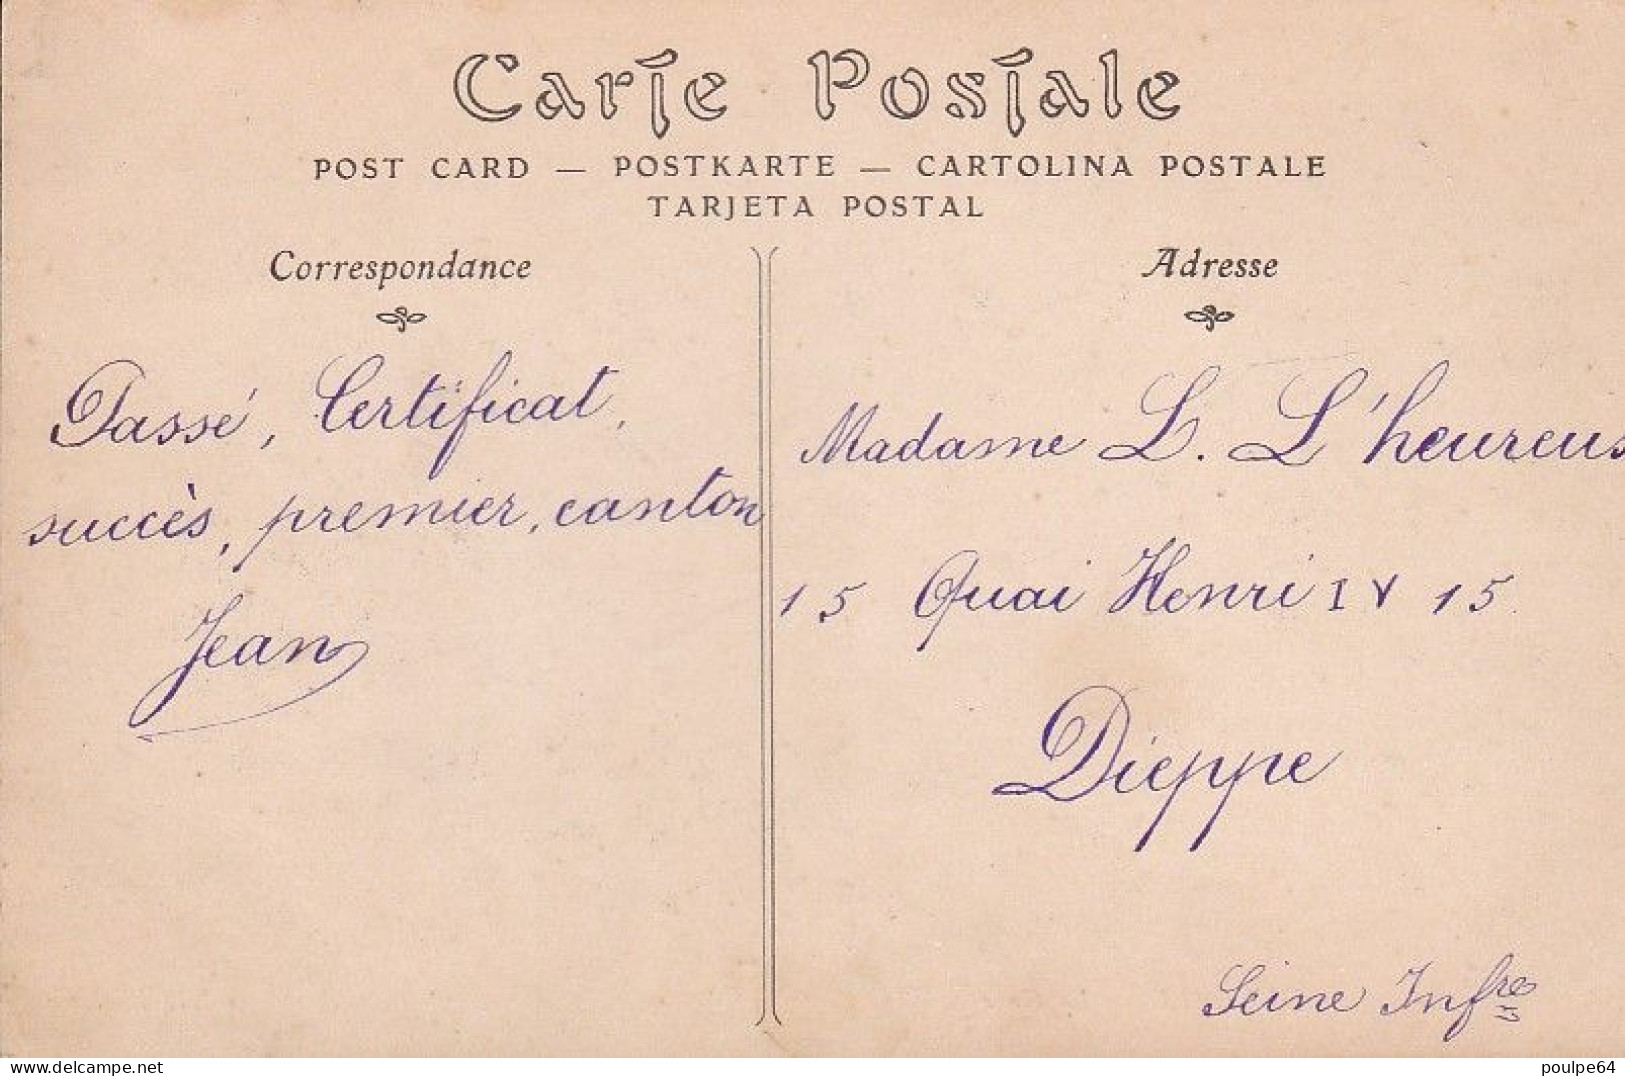 Carte Postale
POST CARD — POSTKARTE — CARTOLINA POSTALE
TARJETA POSTAL
Correspondance
Passé, Certificat,
succès, premier, canton
Jean
Adresse
Madame L. L'heureus
15 Quai Henri IV 15
Dieppe
Seine Infre
delcampe.net
poulpe64